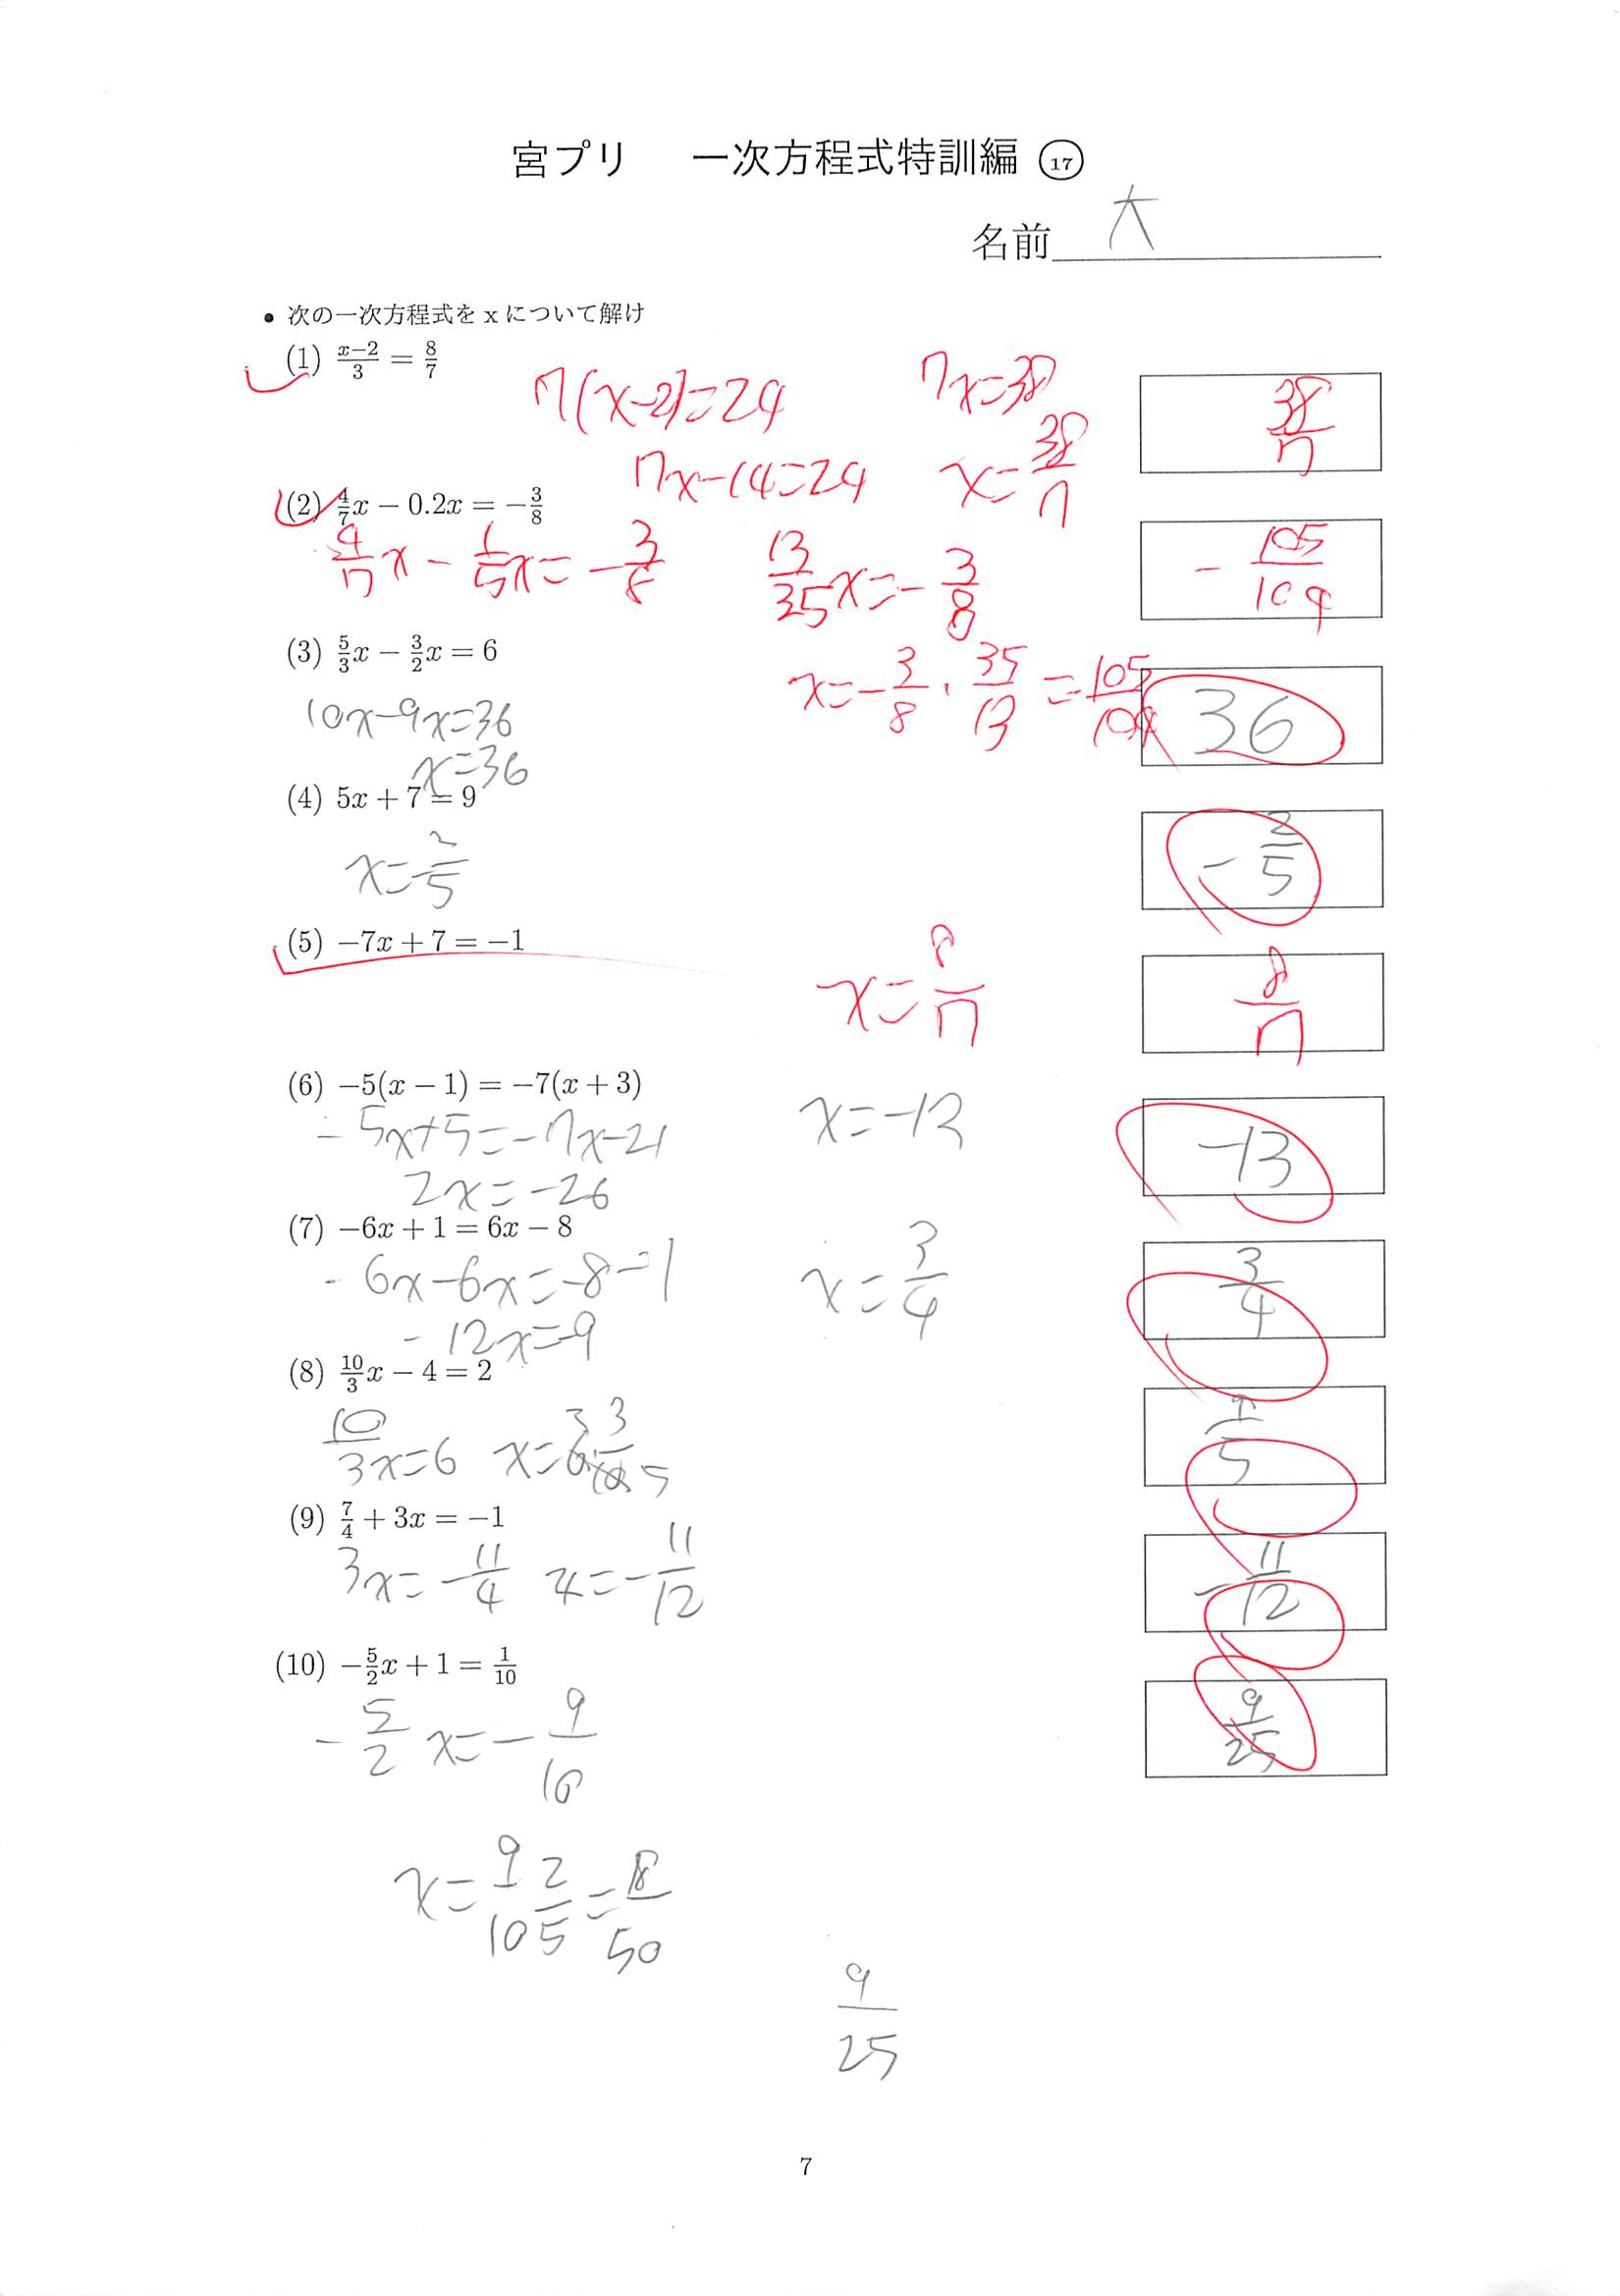 宮プリ 一次方程式特訓編 ⑰
名前 大
• 次の一次方程式を x について解け
(1) \frac{x-2}{3} = \frac{8}{7}
7(x-2)=24
7x-14=24
7x=38
x=\frac{38}{7}
\frac{38}{7}
(2) \frac{4}{7}x - 0.2x = -\frac{3}{8}
\frac{4}{7}x - \frac{1}{5}x = -\frac{3}{8}
\frac{13}{35}x = -\frac{3}{8}
x = -\frac{3}{8} · \frac{35}{13} = -\frac{105}{104}
-\frac{105}{104}
(3) \frac{5}{3}x - \frac{3}{2}x = 6
10x-9x=36
x=36
36
(4) 5x + 7 = 9
x=\frac{2}{5}
-\frac{2}{5}
(5) -7x + 7 = -1
x=\frac{8}{7}
\frac{8}{7}
(6) -5(x - 1) = -7(x + 3)
-5x+5=-7x-21
2x=-26
x=-13
-13
(7) -6x + 1 = 6x - 8
-6x-6x=-8-1
-12x=-9
x=\frac{3}{4}
\frac{3}{4}
(8) \frac{10}{3}x - 4 = 2
\frac{10}{3}x=6
\frac{9}{5}
(9) \frac{7}{4} + 3x = -1
3x=-\frac{11}{4} x=-\frac{11}{12}
-\frac{11}{12}
(10) -\frac{5}{2}x + 1 = \frac{1}{10}
-\frac{5}{2}x=-\frac{9}{10}
x=\frac{9}{10}\frac{2}{5}=\frac{18}{50}
\frac{9}{25}
\frac{9}{25}
7